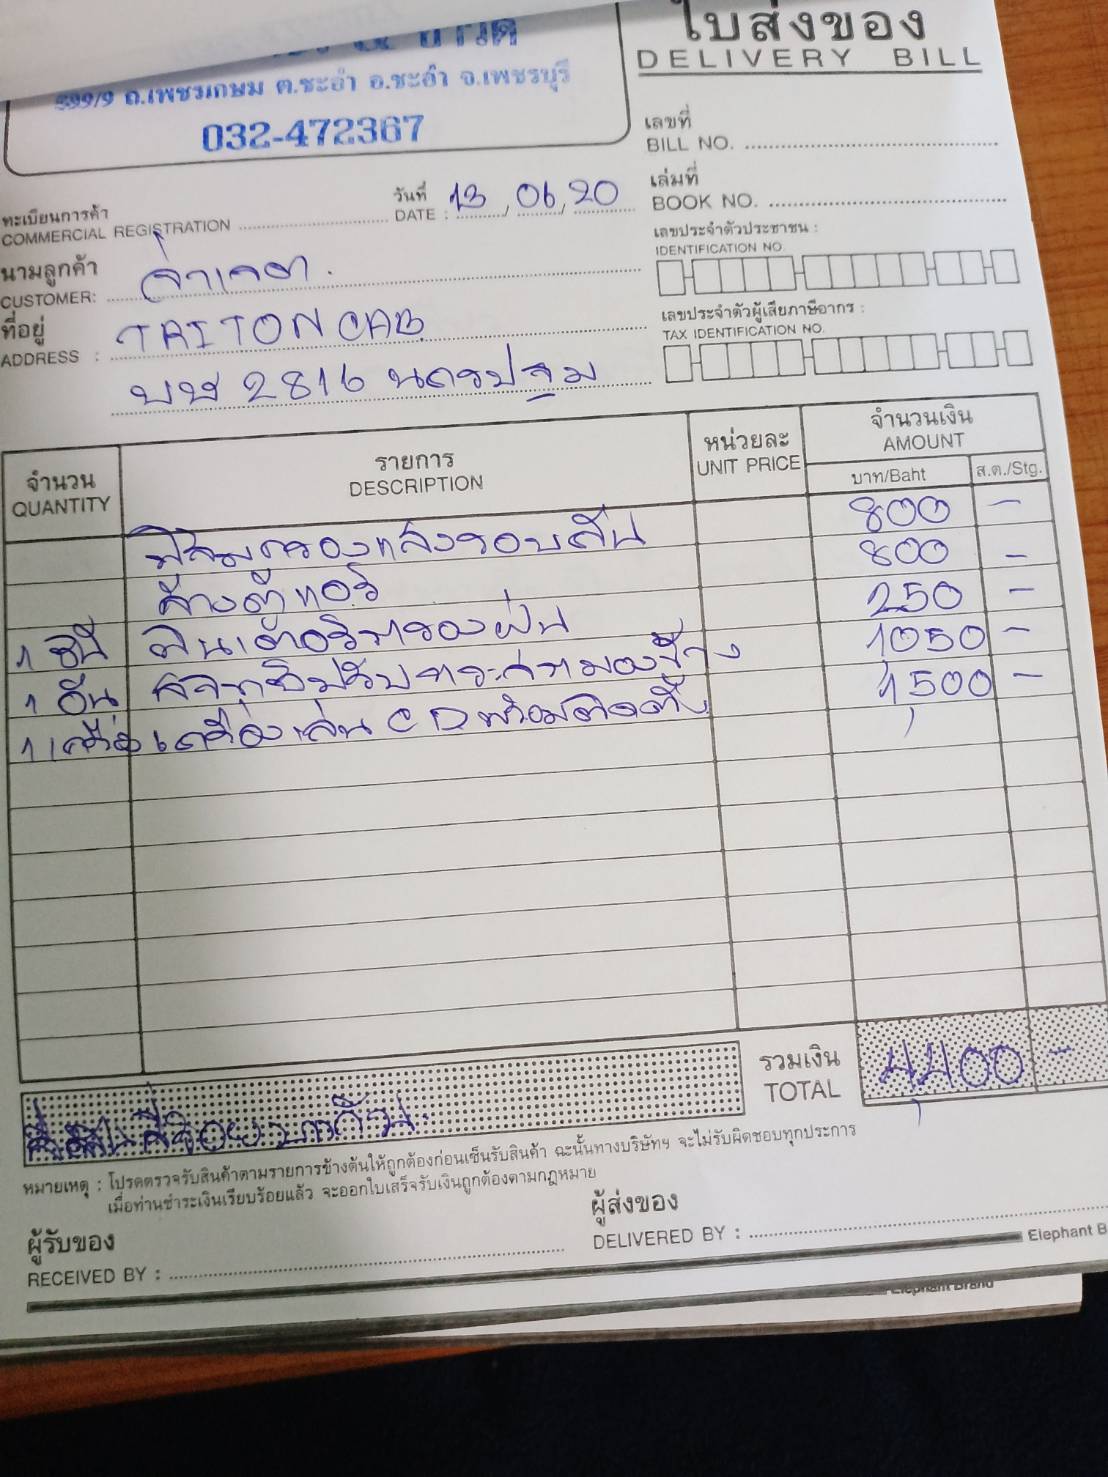 ใบส่งของ
DELIVERY BILL
599/9 ถ.เพชรเกษม ต.ชะอำ อ.ชะอำ จ.เพชรบุรี
032-472367
เลขที่
BILL NO.
เล่มที่
BOOK NO.
ทะเบียนการค้า
COMMERCIAL REGISTRATION
วันที่
DATE : 13/06/20
เลขประจำตัวประชาชน :
IDENTIFICATION NO.
นามลูกค้า
CUSTOMER:
เลขประจำตัวผู้เสียภาษีอากร :
TAX IDENTIFICATION NO.
ที่อยู่ TRITON CAB
ADDRESS :
บษ 2816 นครปฐม
จำนวน
QUANTITY
รายการ
DESCRIPTION
หน่วยละ
UNIT PRICE
จำนวนเงิน
AMOUNT
บาท/Baht
ส.ต./Stg.
ฟิล์มกรองแสงรอบคัน 800 -
ล้างตู้แอร์ 800 -
1 250 -
1 อัน 1050 -
1 เครื่อง เครื่องเล่น CD พร้อมติดตั้ง 1,500 -
รวมเงิน
TOTAL
4,400 -
สี่พันสี่ร้อยบาทถ้วน
หมายเหตุ : โปรดตรวจรับสินค้าตามรายการข้างต้นให้ถูกต้องก่อนเซ็นรับสินค้า ฉะนั้นทางบริษัทฯ จะไม่รับผิดชอบทุกประการ
เมื่อท่านชำระเงินเรียบร้อยแล้ว จะออกใบเสร็จรับเงินถูกต้องตามกฎหมาย
ผู้รับของ
RECEIVED BY :
ผู้ส่งของ
DELIVERED BY :
Elephant B
Elephant Brand